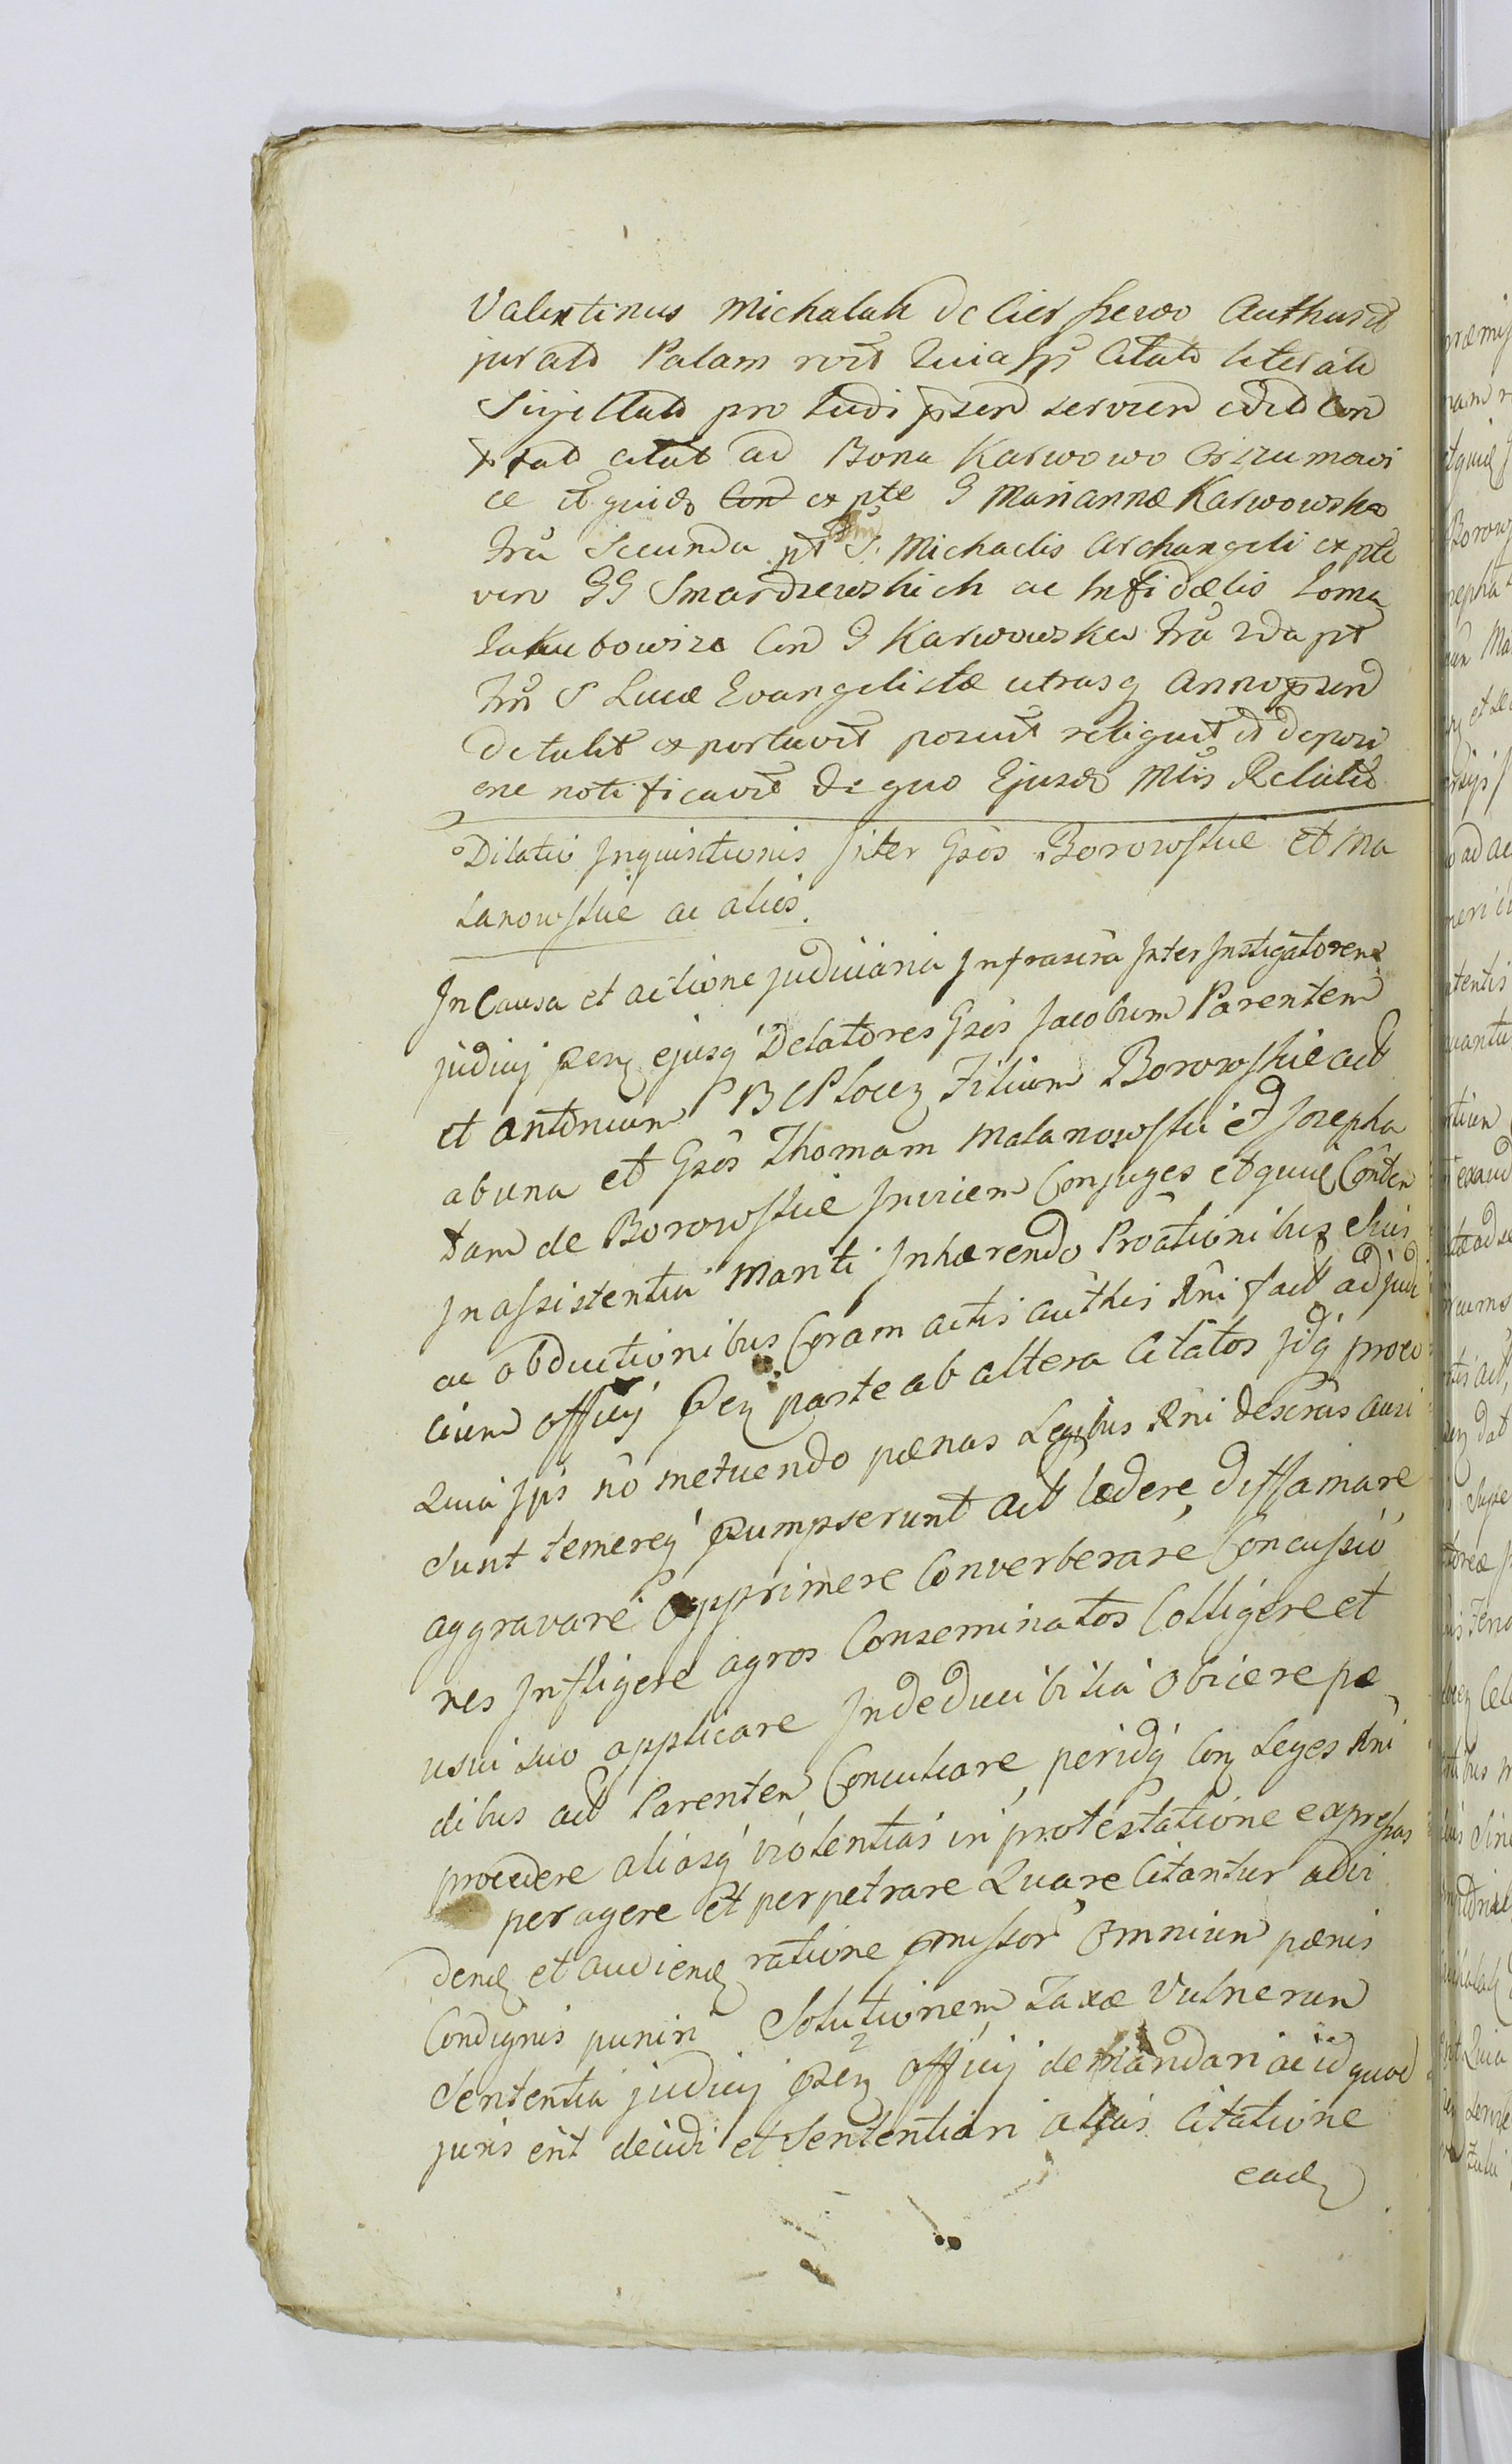 Valentinus Michalak de Cierszewo Authus et
jurats Palam rvit Quia Ips Citats literats
Sigillats pro Judi psend servien edits Con
xtats citat ad Bona Karwowo Orszumowi
ce et quid Con ex pte G Mariannæ Karwowska
fra Secunda pt S. Michaelis Archangeli ex pte
vero GG Smardzewskich ac Infidælis Loma
Jakubowicz Con G Karwowska fra 2da pt
frū S Lucæ Evangelistæ utrasq Anno psend
detulit exportavit posuit reliquit et deposi
one notificavit De quo Ejusd Mlis Relatio
Dilatio Inquisitionis Inter Gsos Borowskie et Ma
lanowskie ac alios.
In Causa et actione judiciaria Infrascra Inter Instigatorem
judicij psen ejusq Delatores Gsos Jacobum Parentem
et Antonium P B C Plocen Filium Borowskie act
ab una et Gsos Thomam Malanowski et Josepha
tam de Borowskie Inviem Conjuges et quid Conten
In assistentia Mariti Inhærendo Proationibus Ehis
ac obductionibus Coram actis authis Rni fact ad judi
cium officij psen parte ab altera Citatos Idq proeo
Quia Ips nō metuendo pænas Legibus Rni descras ausi
sunt temereq psumpserunt act lædere, diffamare
aggravare Opprimere Converberare Concussio
nes Infligere agros Conseminatos Colligere et
usui suo applicare Indeducibilia Obicere pæ
dibus act Parentem Conculcare, peridq Con Leges Rni
procedere aliasq violentias in protestatione expressas
peragere et perpetrare Quare Citantur advi
dend et audiend ratione pmissor Omnium pænis
Condignis puniri Solutionem Taxæ Vulnerum
Sententia judicij psen officij demandari ac id quod
juris erit decidi et Sententiari alias Citatione
ead